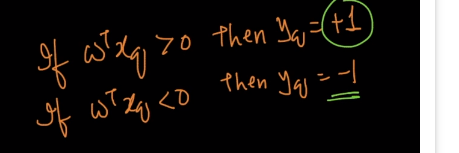 If ωᵀx_q > 0 then y_q = +1
If ωᵀx_q < 0 then y_q = -1